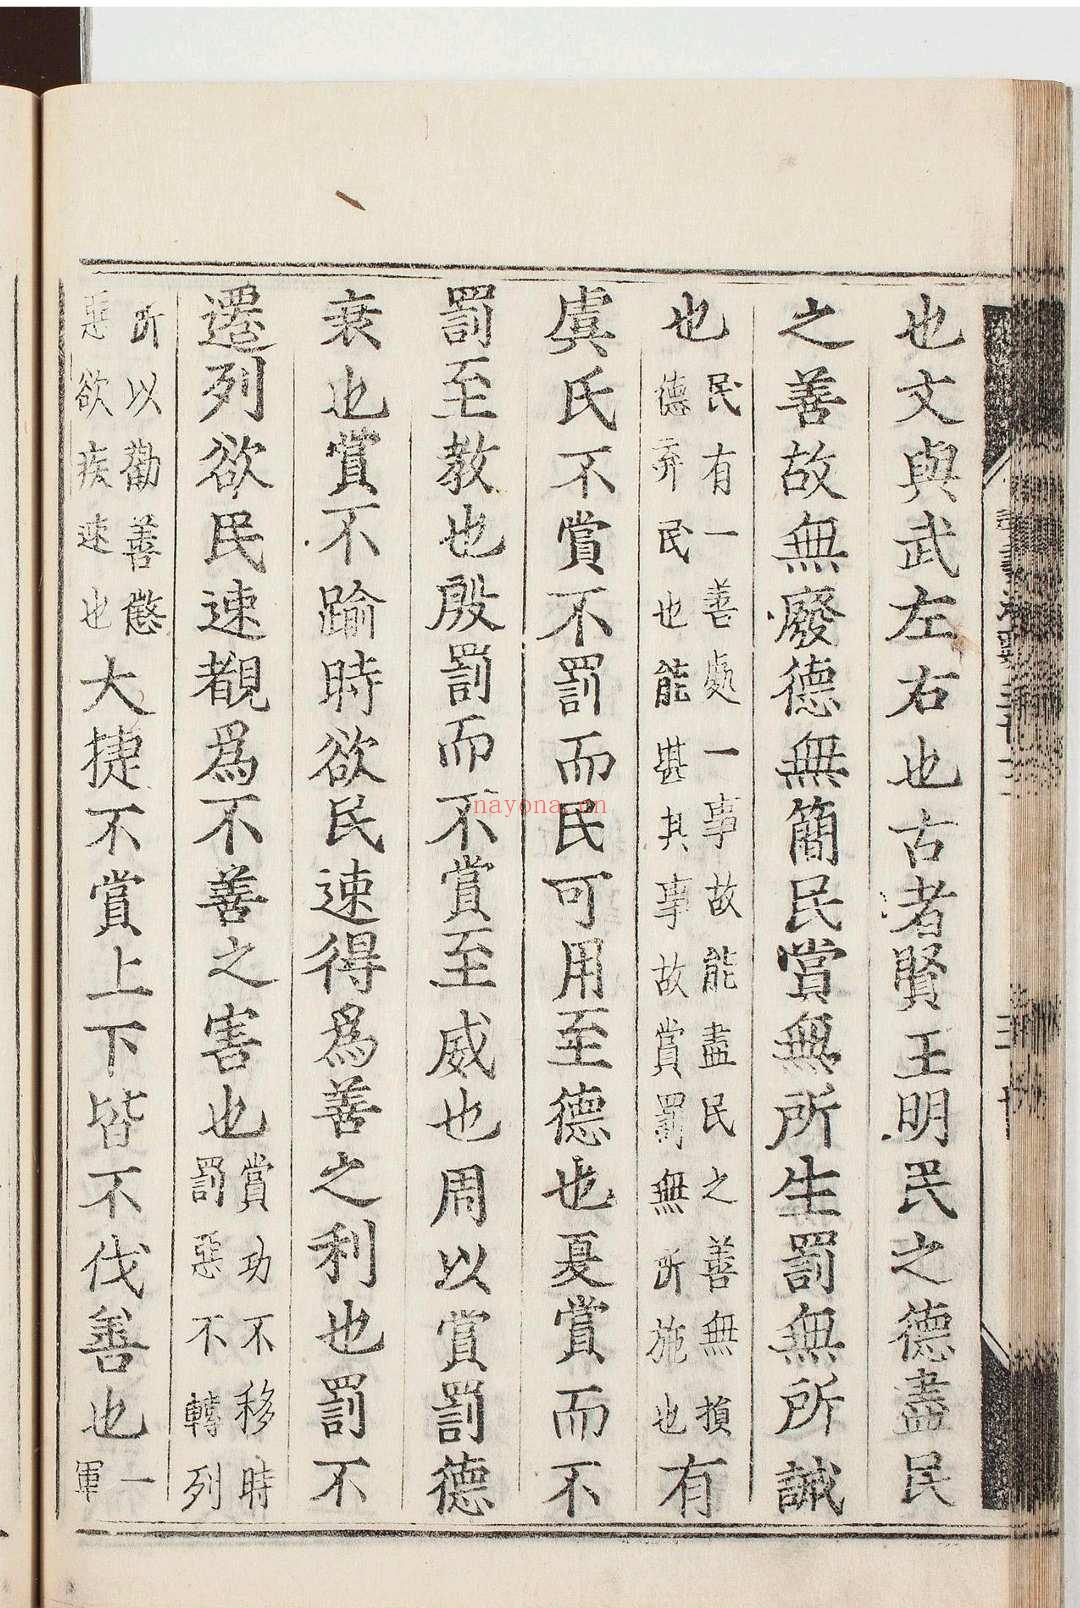 也文與武左右也古者賢王明民之德盡民
之善故無廢德無簡民賞無所生罰無所誡
也民有一善處一事故能盡民之善無損
德弃民也能堪其事故賞罰無所施也有
虞氏不賞不罰而民可用至德也夏賞而不
罰至教也殷罰而不賞至威也周以賞罰德
衰也賞不踰時欲民速得爲善之利也罰不
遷列欲民速覩爲不善之害也賞功不移時
罰惡不轉列
所以勸善懲
惡欲疾速也大捷不賞上下皆不伐善也一
軍
nayona.cn